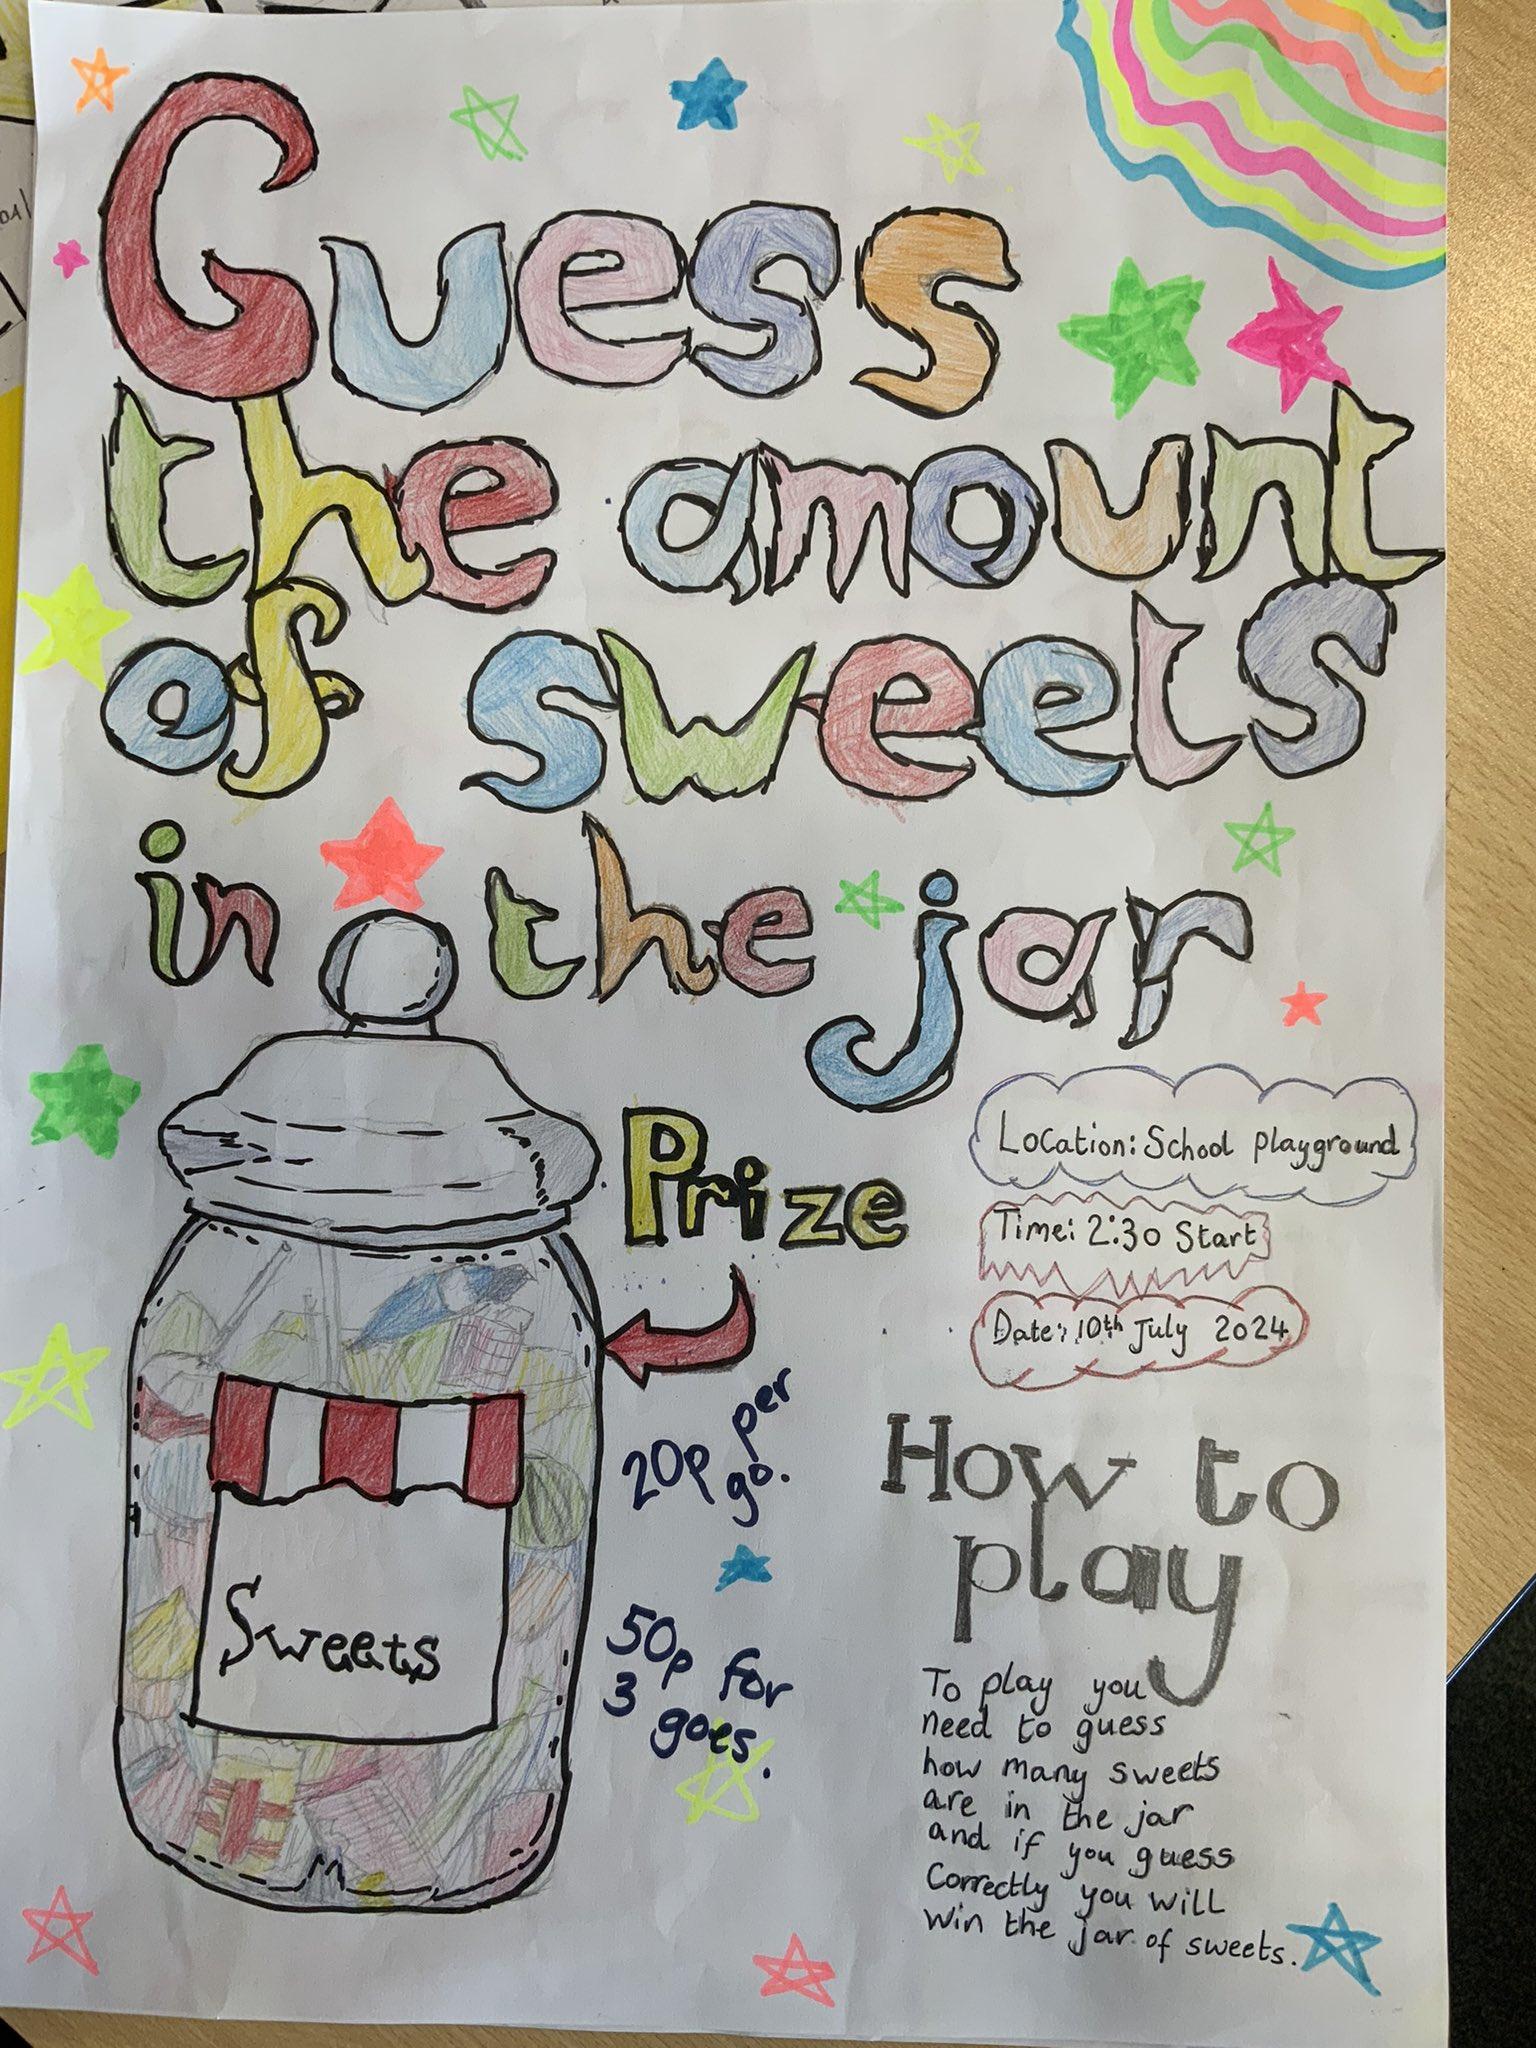 Guess
the amount
of sweets
in the jar
Prize
Location: School playground
Time: 2:30 Start
Date: 10th July 2024
20p per
go.
50p for
3 goes.
Sweets
How to
play
To play you
need to guess
how many sweets
are in the jar
and if you guess
Correctly you will
win the jar of sweets.